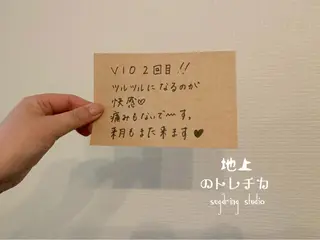 VIO 2回目!!
ツルツルになるのが
快感♡
痛みもないで〜す。
来月もまた来ます♥
地上
のトレチカ